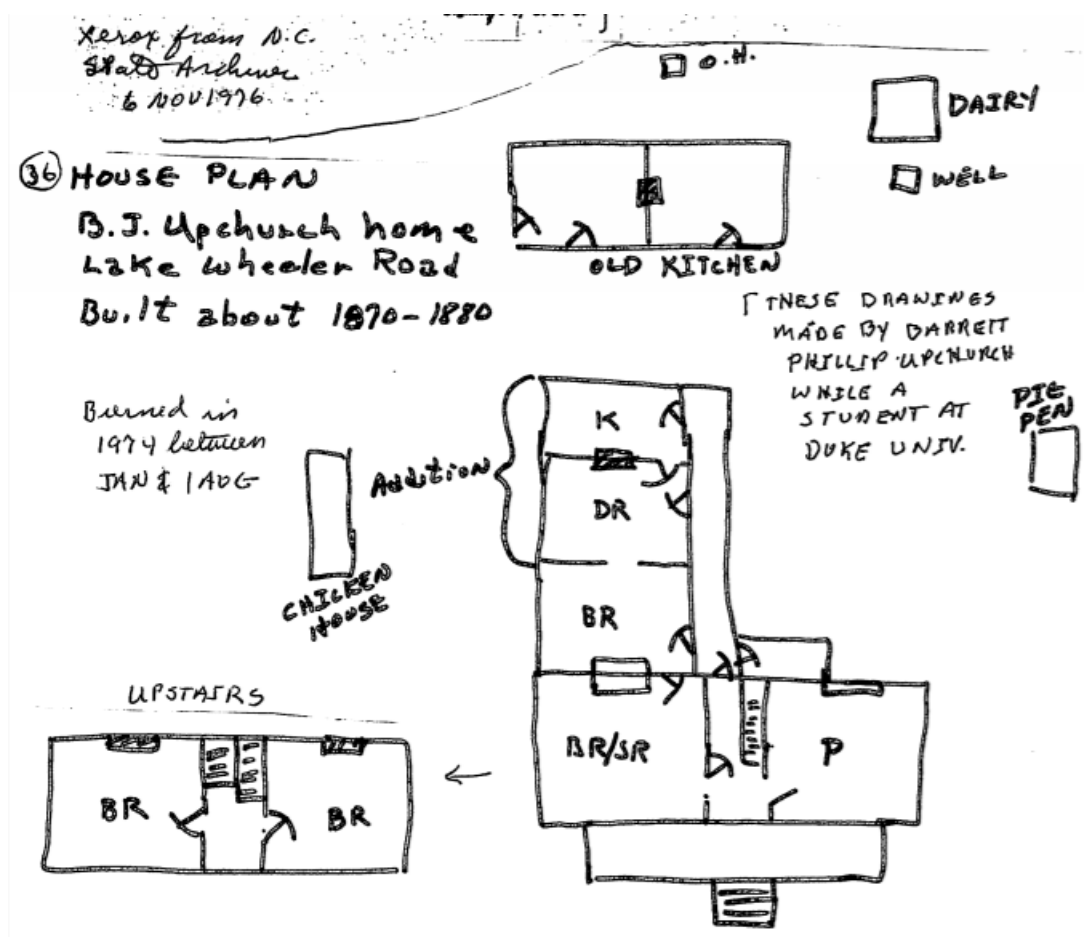 Xerox from N.C.
State Archives
6 NOV 1976
O.H.
DAIRY
WELL
36 HOUSE PLAN
B.J. Upchurch home
Lake Wheeler Road
Built about 1870-1880
OLD KITCHEN
[ THESE DRAWINGS
MADE BY DARRETT
PHILLIP UPCHURCH
WHILE A
STUDENT AT
DUKE UNIV.
PIG
PEN
Burned in
1974 between
JAN & 1 AUG
Addition
K
DR
CHICKEN
HOUSE
BR
UPSTAIRS
BR/SR
P
BR
BR